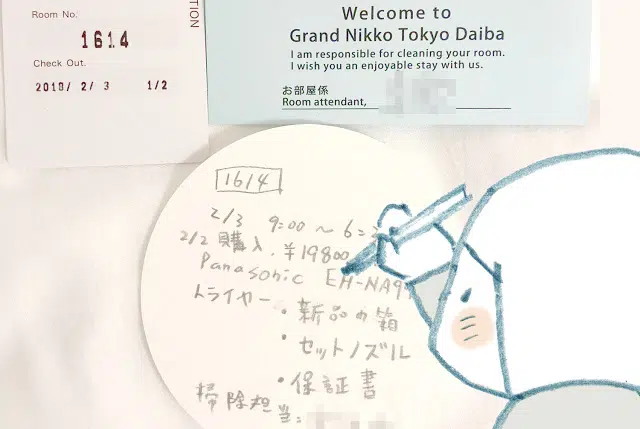 Room No.
1614
Check Out.
2018/ 2/ 3 1/2
TION
Welcome to
Grand Nikko Tokyo Daiba
I am responsible for cleaning your room.
I wish you an enjoyable stay with us.
お部屋係
Room attendant,
1614
2/3 9:00 ～ 6:
2/2 購入 ¥19800
Panasonic EH-NA9
ドライヤー ・新品の箱
・セットノズル
・保証書
掃除担当: